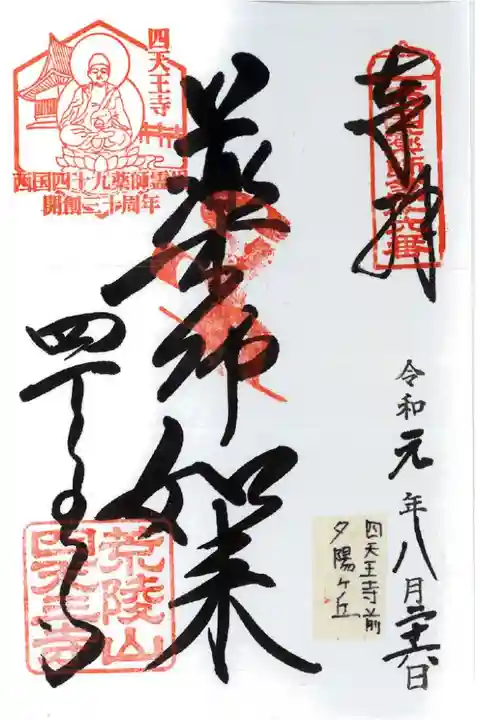 奉拝
西国薬師第十六番
令和元年八月二十六日
四天王寺前
夕陽ヶ丘
薬師如来
四天王寺
西国四十九薬師霊場
開創三十周年
四天王寺
荒陵山
四天王寺